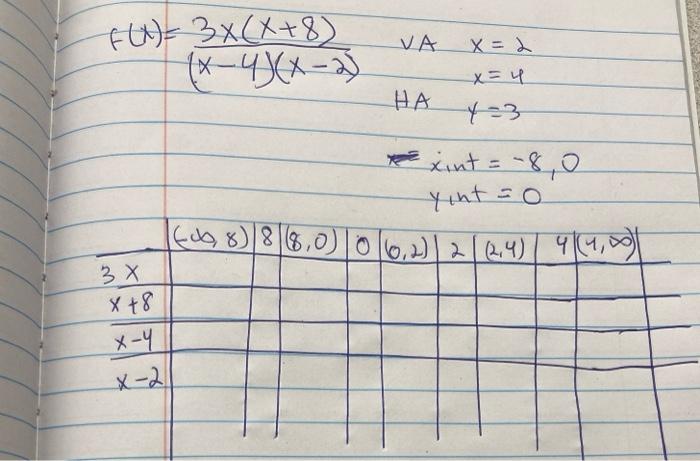 f(x) = 3x(x+8)
(x-4)(x-2)
VA x = 2
x = 4
HA y = 3
x int = -8, 0
y int = 0
(-∞, 8) 8 (8,0) 0 (0,2) 2 (2,4) 4 (4,∞)
3x
x+8
x-4
x-2